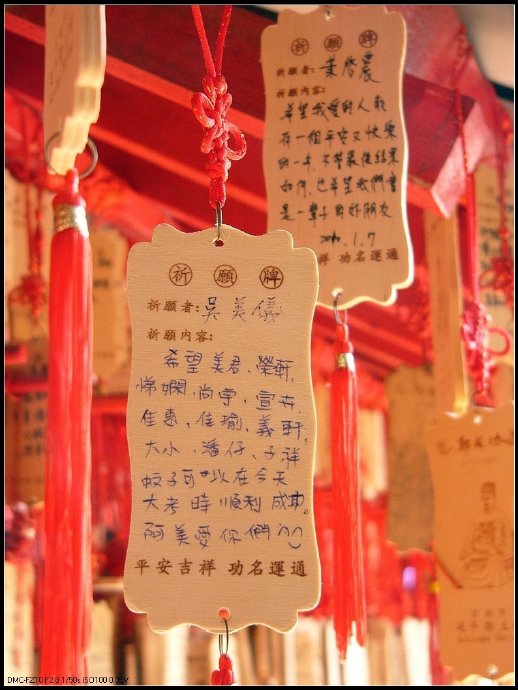 祈願牌
祈願者: 吳美儀
祈願內容:
希望美君、瑩軒、
悌嫻、尚宇、宣卉、
佳惠、佳瑜、義軒、
大小、潘仔、子祥
蚊子可以在今天
大考時順利成功。
阿美愛你們
平安吉祥 功名運通
祈願牌
祈願者: 葉啓農
祈願內容:
希望我愛的人能
有一個平安又快樂
的一年,不管最後結果
如何,也希望我們會
是一輩子的好朋友
1.7
祥 功名運通
DMC-FZ10 F2.8 1/50s ISO100